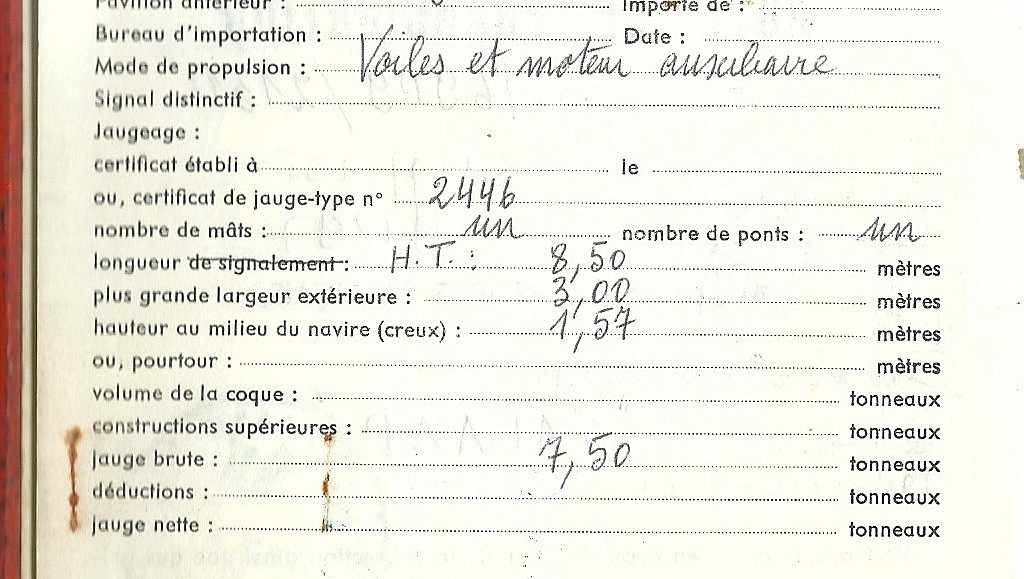 Pavillon antérieur : Importé de :
Bureau d'importation : Date :
Mode de propulsion : Voiles et moteur auxiliaire
Signal distinctif :
Jaugeage :
certificat établi à le
ou, certificat de jauge-type n° 2446
nombre de mâts : un nombre de ponts : un
longueur de signalement : H.T. : 8,50 mètres
plus grande largeur extérieure : 3,00 mètres
hauteur au milieu du navire (creux) : 1,57 mètres
ou, pourtour : mètres
volume de la coque : tonneaux
constructions supérieures : tonneaux
jauge brute : 7,50 tonneaux
déductions : tonneaux
jauge nette : tonneaux